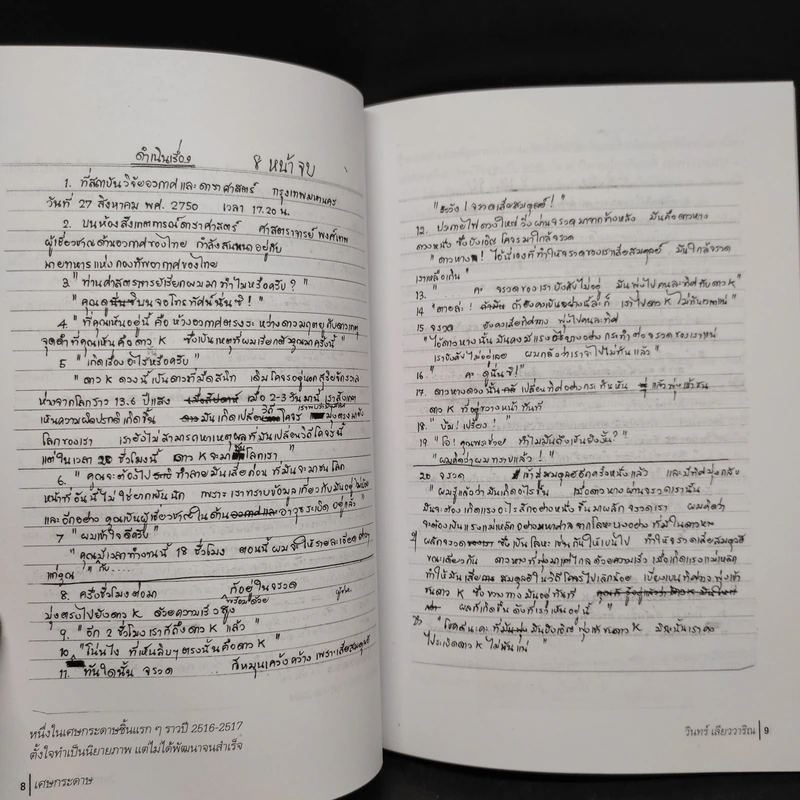 ดำเนินเรื่อง 8 หน้าจบ
1. ที่สถาบันวิจัยอวกาศและดาราศาสตร์ กรุงเทพมหานคร
วันที่ 27 สิงหาคม พศ. 2750 เวลา 17.20 น.
2. บนห้องสังเกตการณ์ดาราศาสตร์ ศาสตราจารย์ พงศ์เทพ
ผู้เชี่ยวชาญด้านอวกาศของไทย กำลังสนทนาอยู่กับ
นายทหารแห่งกองทัพอากาศของไทย
3 "ท่านศาสตราจารย์เรียกผมมาทำไมหรือครับ?"
"คุณดูบนจอโทรทัศน์นั่นซี!"
4 "ที่คุณเห็นอยู่นี้ คือ ห้วงอวกาศตรงระหว่างดาวมฤตยูกับดาวเกตุ
จุดดำที่คุณเห็นคือดาว K ซึ่งเป็นเหตุที่ผมเรียกตัวคุณมาครั้งนี้"
5 "เกิดเรื่องอะไรหรือครับ"
"ดาว K ดวงนี้เป็นดาวที่มืดสนิท เดิมโคจรอยู่นอกสุริยจักรวาล
ห่างจากโลกราว 13.6 ปีแสง เมื่อ 2-3 วันมานี้ เราสังเกต
เห็นความผิดปรกติเกิดขึ้น มันเกิดเปลี่ยนวิถีโคจร มุ่งตรงมายัง
โลกของเรา เรายังไม่สามารถหาเหตุผลที่มันเปลี่ยนวิถีโคจรนี้
แต่ในเวลา 20 ชั่วโมงนี้ ดาว K จะมาชนโลกเรา"
6. "คุณจะต้องไปทำลายมันเสียก่อนที่มันจะมาชนโลก
หน้าที่อันนี้ไม่ใช่ยากนัก เพราะเราทราบข้อมูลเกี่ยวกับมันอยู่
และอีกอย่าง คุณเป็นผู้เชี่ยวชาญในด้านอาวุธระเบิดอยู่แล้ว"
7 "ผมเข้าใจดีครับ"
"คุณมีเวลาทำงานนี้ 18 ชั่วโมง ตอนนี้ผมจะให้รายละเอียด
แก่คุณ" "กับ....
8. ครึ่งชั่วโมงต่อมา ก็อยู่ในจรวด
มุ่งตรงไปยังดาว K ด้วยความเร็วสูง
9. "อีก 2 ชั่วโมงเราก็ถึงดาว K แล้ว"
10 "โน่นไง ที่เห็นลิบๆ ตรงนั้นคือดาว K"
11. ทันใดนั้น จรวด ก็หมุนเคว้งคว้าง เพราะเสียสมดุลย์
หนึ่งในเศษกระดาษชิ้นแรก ๆ ราวปี 2516-2517
ตั้งใจทำเป็นนิยายภาพ แต่ไม่ได้พัฒนาจนสำเร็จ
8 เศษกระดาษ
"ระวัง! จรวดเสียสมดุลย์!"
12. ปวงไฟดวงใหญ่ วิ่งผ่านจรวดมาจากข้างหลัง มันคือดาวหาง
ดวงหนึ่ง ซึ่งบังเอิญโคจรมาใกล้จรวด
"ดาวหาง! ไอ้นี่เองที่ทำให้จรวดของเราเสียสมดุลย์ มันใกล้จรวด
เราเหลือเกิน"
13. จรวดของเราบังคับไม่อยู่ มันพุ่งไปคนละทิศกับดาว K"
14 ถ้ายังคงเป็นอย่างนี้ละก็ เราไปดาว K ไม่ทันกาลแน่"
15 จรวด ยังคงเสียทิศทาง พุ่งไปคนละทิศ
"ไอ้ดาวหางนั้น มันคงมีแรงอะไรบางอย่าง กระทำต่อจรวดของเราแน่
เราบังคับไม่อยู่เลย ผมกลัวว่าเราจะไปไม่ทันแล้ว"
16. ดูนั่นซี!"
17. ดาวหางดวงนั้น เปลี่ยนทิศอย่างกระทันหัน แล้วพุ่งเข้าชน
ดาว K ที่อยู่ขวางหน้าทันที
18. "บึ้ม! เปรี้ยง!"
19. "โอ! คุณพระช่วย ทำไมมันถึงเป็นยังงั้น?"
"ผมคิดว่าผมทราบแล้ว"
20. จรวด เข้าสู่สมดุลย์อีกครั้งหนึ่งแล้ว และมีทิศมุ่งกลับ
"ผมรู้แล้วว่ามันเกิดอะไรขึ้น เมื่อดาวหางผ่านจรวดเรานั้น
มันจะต้องเกิดแรงอะไรสักอย่างหนึ่งขึ้นมาผลักจรวด ผมคิดว่า
จะต้องเป็นแรงแม่เหล็กอย่างมหาศาลจากโลหะบางอย่างที่มีในดาวหาง
ผลักจรวด ซึ่งเป็นโลหะเช่นกันให้เบนไป ทำให้จรวดเสียสมดุลย์
ขณะเดียวกัน ดาวหางที่พุ่งมาด้วยความเร็ว เมื่อเกิดแรงแม่เหล็ก
ทำให้มันเสียสมดุลย์ในวิถีโคจรไปเล็กน้อย เบี่ยงเบนทิศทางพุ่งเข้า
ชนดาว K ซึ่งขวางทางมันอยู่ทันที
ผลก็เกิดขึ้น ดังที่เราเห็นอยู่นี้"
"โชคดีนะคะที่มันบังเอิญพุ่งเข้าชนดาว K มิฉะนั้นเราคง
ไประเบิดดาว K ไม่ทันแน่"
วินทร์ เลียววาริณ 9